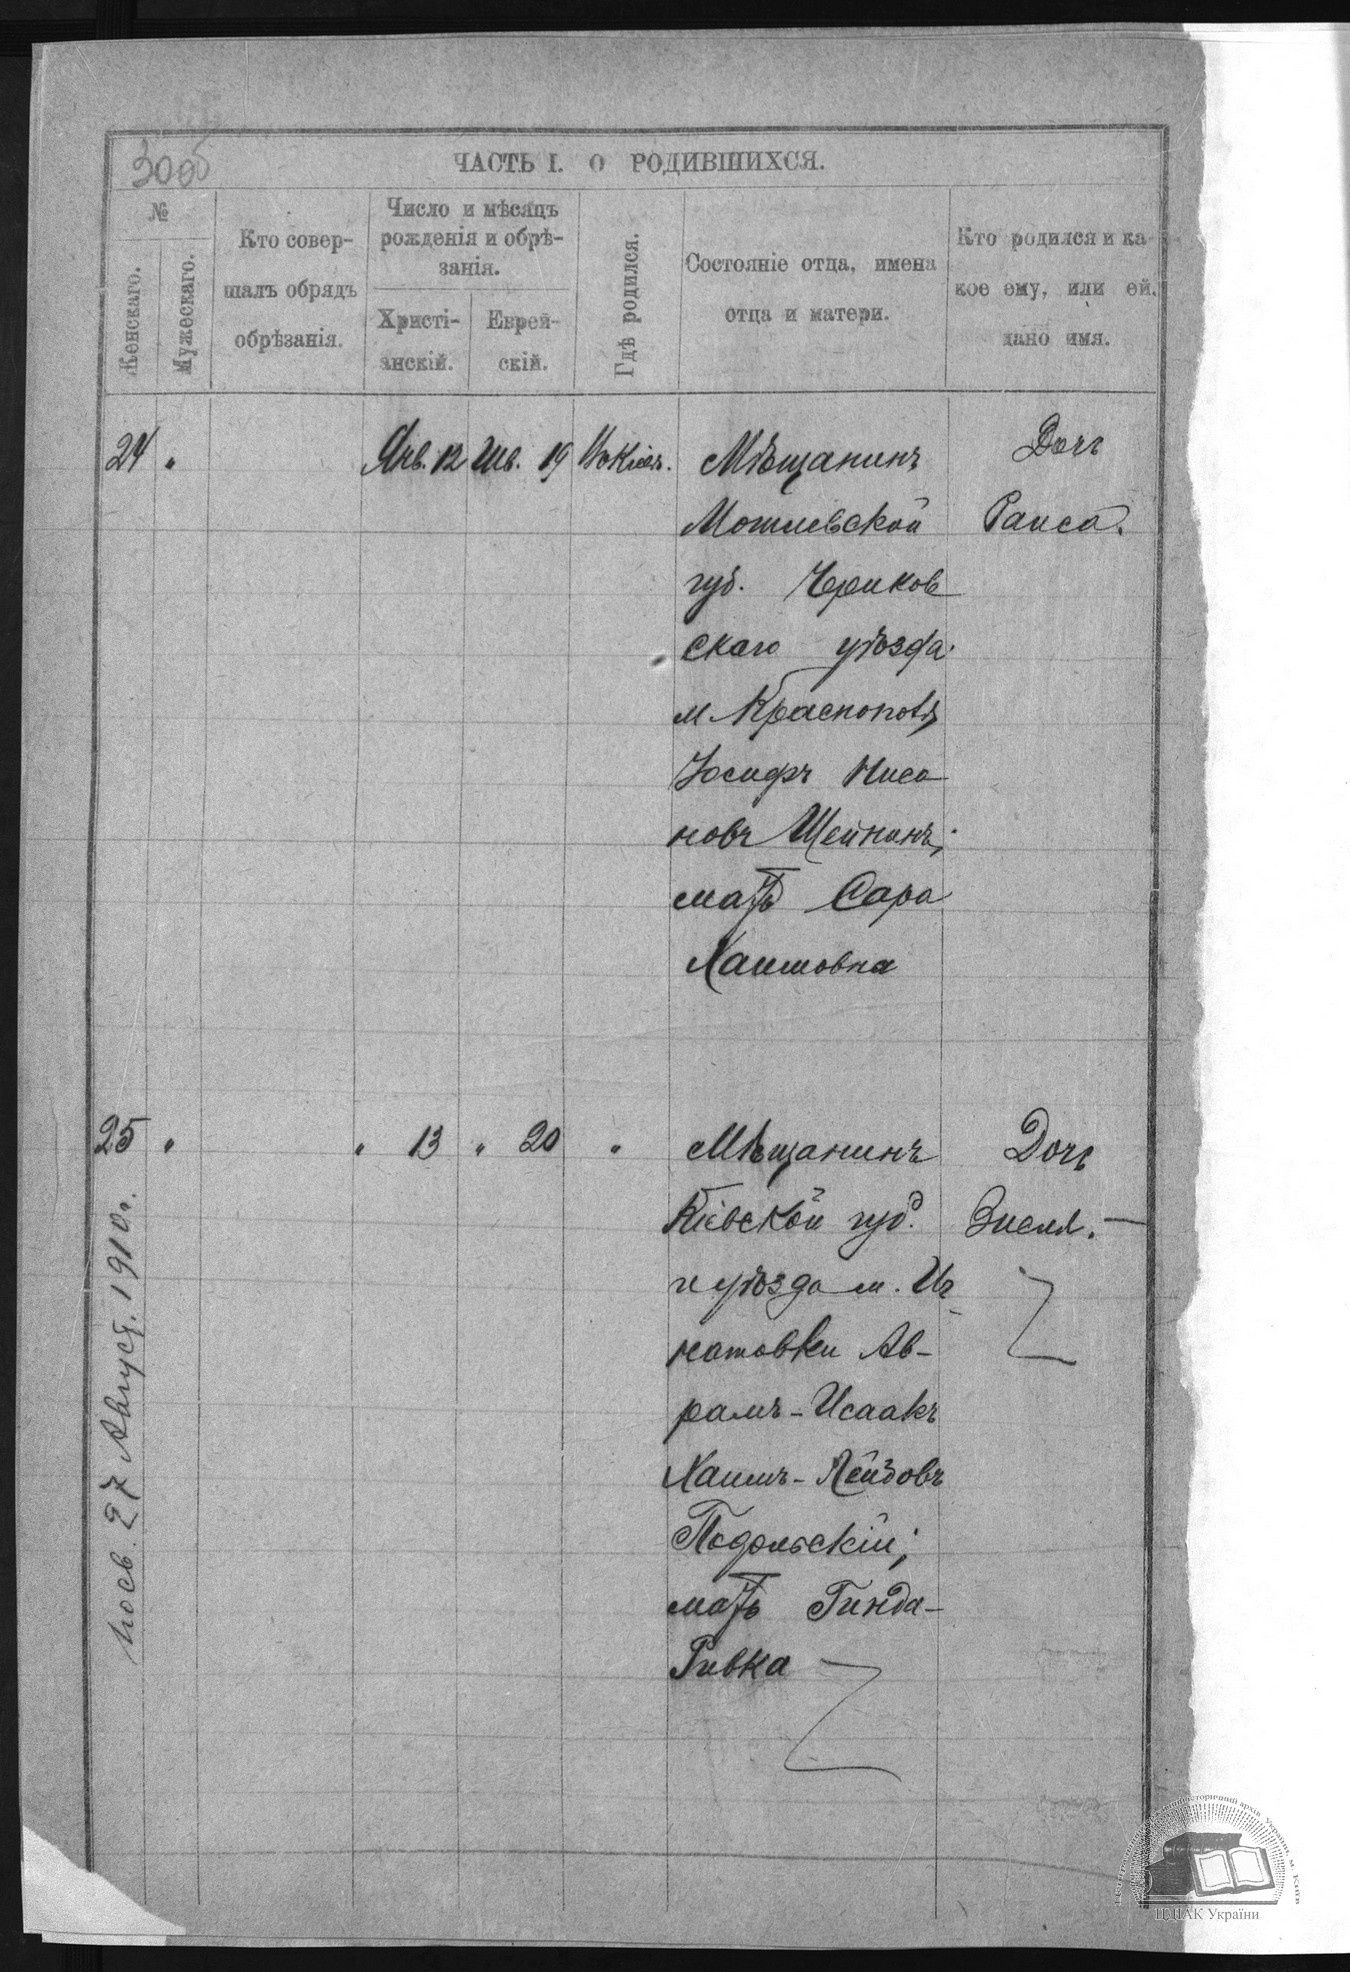 30об
ЧАСТЬ I. О РОДИВШИХСЯ.
№
Женскаго.
Мужескаго.
Кто совер-
шалъ обрядъ
обрѣзанія.
Число и мѣсяцъ
рожденія и обрѣ-
занія.
Христі-
анскій.
Еврей-
скій.
Гдѣ родился.
Состояніе отца, имена
отца и матери.
Кто родился и ка-
кое ему, или ей,
дано имя.
24 " Янв. 12 Шв. 19 Въ Кіевѣ.
Мѣщанинъ
Могилевской
губ. Чериков
скаго уѣзда
м Краснополья
Іосифъ Ниса
новъ Шейнинъ;
мать Сара
Хаимовна
Дочь
Раиса.
25 " " 13 " 20 "
Мѣщанинъ
Кіевской губ.
и уѣзда м. Иг
натовки Ав-
рамъ-Исаакъ
Хаимъ-Лейбовъ
Подольскій;
мать Гинда-
Ривка
Дочь
Зисля.
27 Август. 1910.
ЦДІАК України